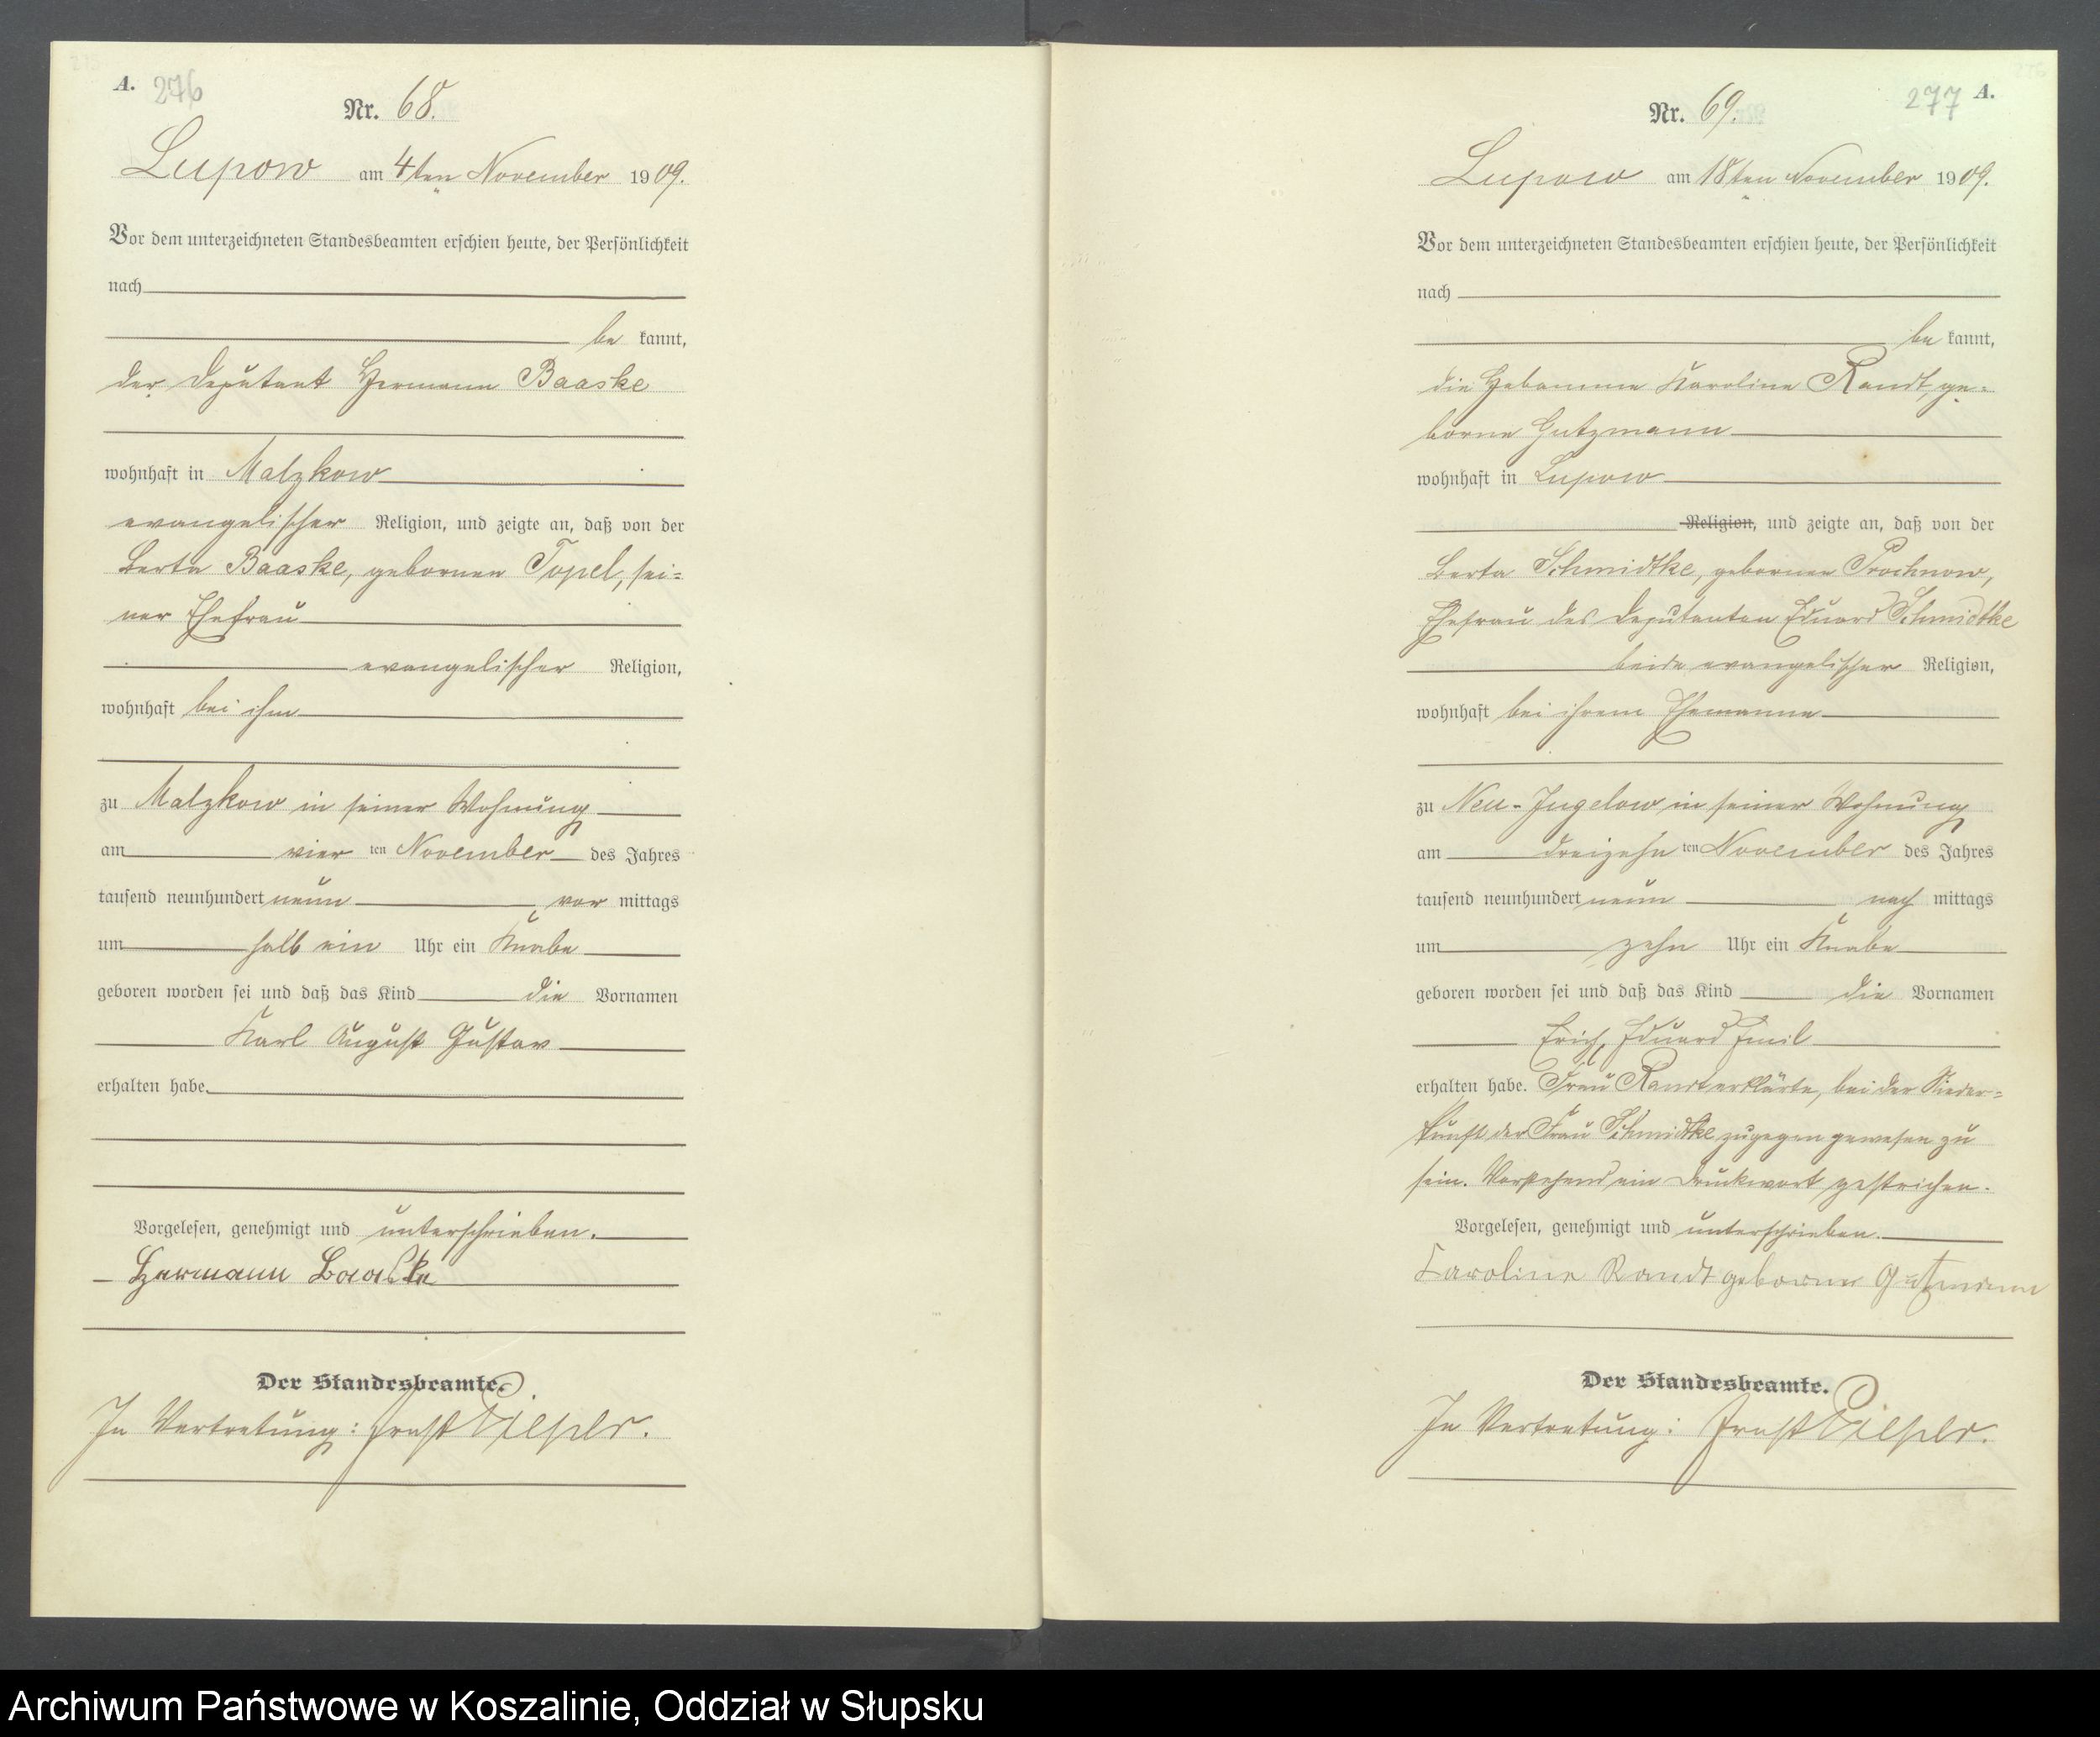 A. 276
Nr. 68.
Lupow am 4ten November 1909.
Vor dem unterzeichneten Standesbeamten erschien heute, der Persönlichkeit
nach
be kannt,
der Deputant Hermann Baaske
wohnhaft in Malzkow
evangelischer Religion, und zeigte an, daß von der
Berta Baaske, gebornen Topel, sei-
ner Ehefrau
evangelischer Religion,
wohnhaft bei ihm
zu Malzkow in seiner Wohnung
am vier ten November des Jahres
tausend neunhundert neun vor mittags
um halb ein Uhr ein Knabe
geboren worden sei und daß das Kind die Vornamen
Karl August Gustav
erhalten habe.
Vorgelesen, genehmigt und unterschrieben.
Hermann Baaske
Der Standesbeamte.
In Vertretung: Ernst Pieper.
277 A.
Nr. 69.
Lupow am 18ten November 1909.
Vor dem unterzeichneten Standesbeamten erschien heute, der Persönlichkeit
nach
be kannt,
die Hebamme Karoline Randt, ge-
borne Gutzmann
wohnhaft in Lupow
Religion, und zeigte an, daß von der
Berta Schmidtke, gebornen Prochnow,
Ehefrau des Deputanten Eduard Schmidtke
beide evangelischer Religion,
wohnhaft bei ihrem Ehemanne
zu Neu-Jugelow in seiner Wohnung
am dreizehn ten November des Jahres
tausend neunhundert neun nach mittags
um zehn Uhr ein Knabe
geboren worden sei und daß das Kind die Vornamen
Erich Eduard Emil
erhalten habe. Frau Randt erklärte, bei der Nieder-
kunft der Frau Schmidtke zugegen gewesen zu
sein. Vorstehend ein Druckwort gestrichen.
Vorgelesen, genehmigt und unterschrieben.
Karoline Randt geborne Gutzmann
Der Standesbeamte.
In Vertretung: Ernst Pieper.
Archiwum Państwowe w Koszalinie, Oddział w Słupsku